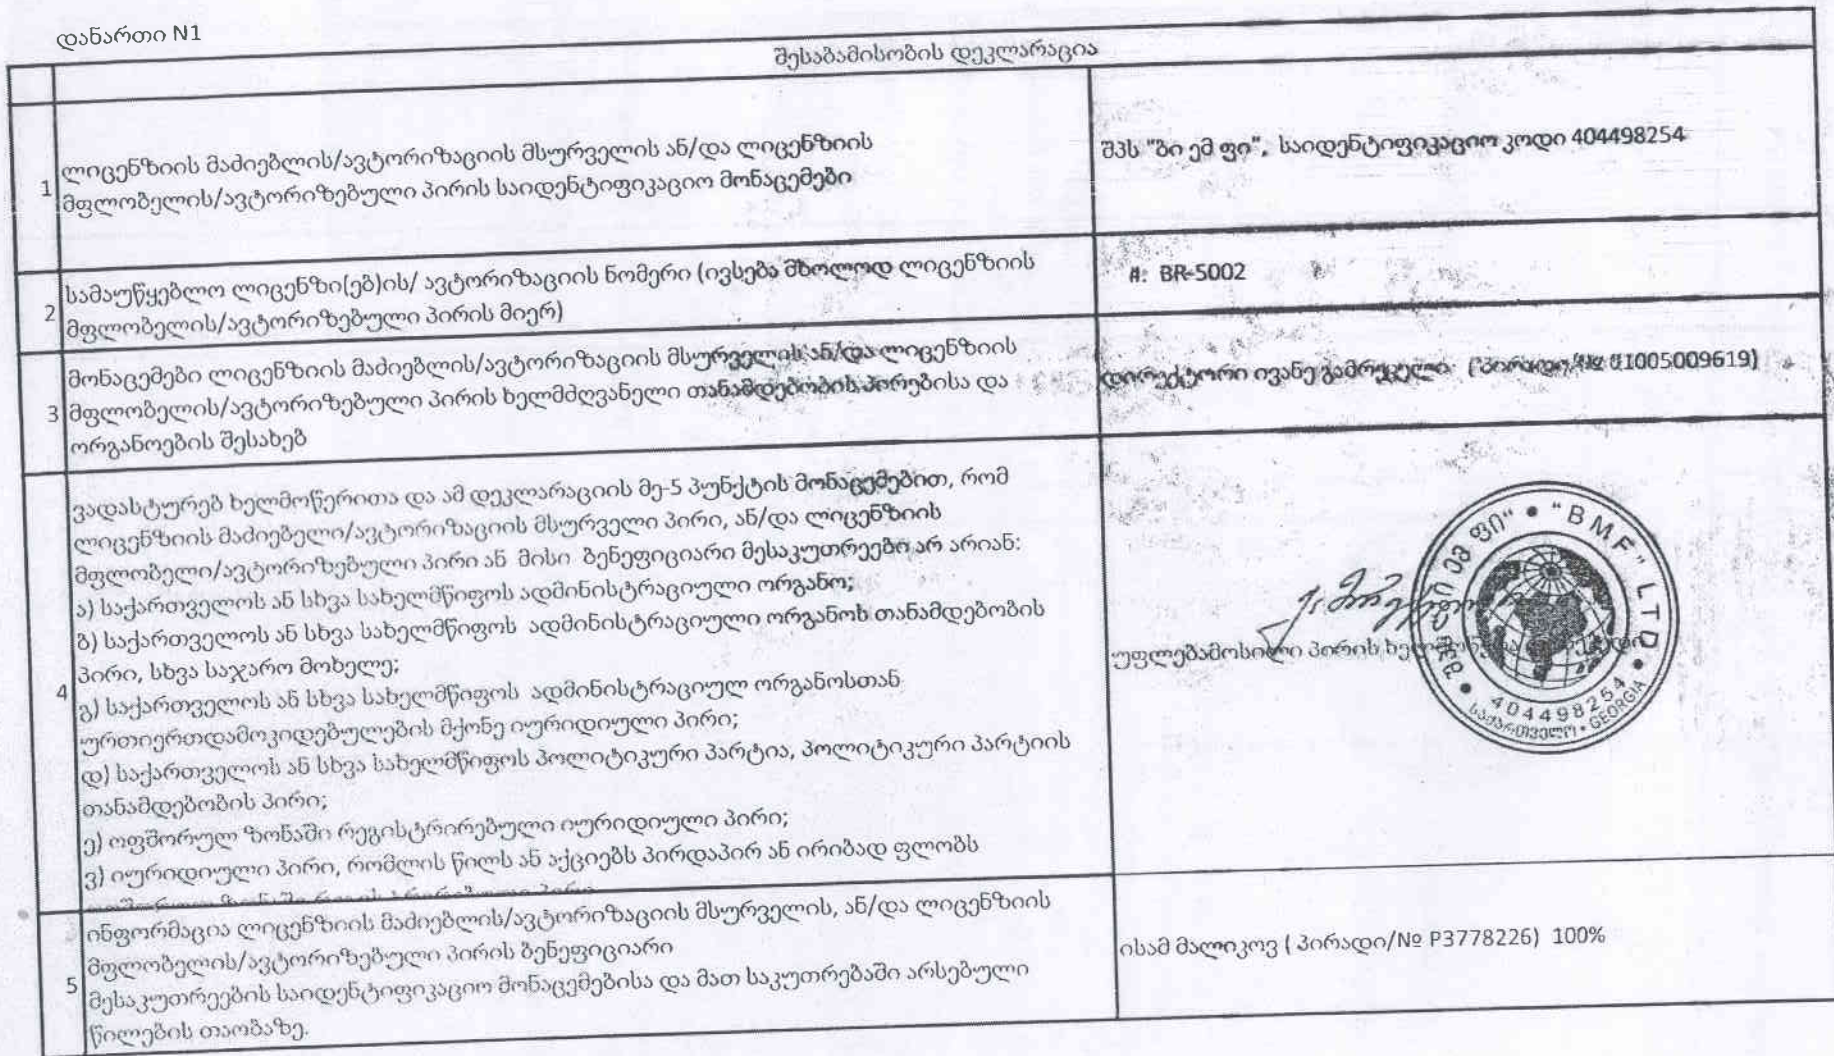 დანართი N1
შესაბამისობის დეკლარაცია
1
ლიცენზიის მაძიებლის/ავტორიზაციის მსურველის ან/და ლიცენზიის
მფლობელის/ავტორიზებული პირის საიდენტიფიკაციო მონაცემები
შპს "ბი ემ ფი", საიდენტიფიკაციო კოდი 404498254
2
სამაუწყებლო ლიცენზი(ებ)ის/ ავტორიზაციის ნომერი (ივსება მხოლოდ ლიცენზიის
მფლობელის/ავტორიზებული პირის მიერ)
#: BR-5002
3
მონაცემები ლიცენზიის მაძიებლის/ავტორიზაციის მსურველის ან/და ლიცენზიის
მფლობელის/ავტორიზებული პირის ხელმძღვანელი თანამდებობის პირებისა და
ორგანოების შესახებ
დირექტორი ივანე გამრეკელი (პირადი/№ 01005009619)
4
ვადასტურებ ხელმოწერითა და ამ დეკლარაციის მე-5 პუნქტის მონაცემებით, რომ
ლიცენზიის მაძიებელი/ავტორიზაციის მსურველი პირი, ან/და ლიცენზიის
მფლობელი/ავტორიზებული პირი ან მისი ბენეფიციარი მესაკუთრეები არ არიან:
ა) საქართველოს ან სხვა სახელმწიფოს ადმინისტრაციული ორგანო;
ბ) საქართველოს ან სხვა სახელმწიფოს ადმინისტრაციული ორგანოს თანამდებობის
პირი, სხვა საჯარო მოხელე;
გ) საქართველოს ან სხვა სახელმწიფოს ადმინისტრაციულ ორგანოსთან
ურთიერთდამოკიდებულების მქონე იურიდიული პირი;
დ) საქართველოს ან სხვა სახელმწიფოს პოლიტიკური პარტია, პოლიტიკური პარტიის
თანამდებობის პირი;
ე) ოფშორულ ზონაში რეგისტრირებული იურიდიული პირი;
ვ) იურიდიული პირი, რომლის წილს ან აქციებს პირდაპირ ან ირიბად ფლობს
უფლებამოსილი პირის
"ბი ემ ფი" • "BMF" LTD •
404498254
საქართველო • GEORGIA
5
ინფორმაცია ლიცენზიის მაძიებლის/ავტორიზაციის მსურველის, ან/და ლიცენზიის
მფლობელის/ავტორიზებული პირის ბენეფიციარი
მესაკუთრეების საიდენტიფიკაციო მონაცემებისა და მათ საკუთრებაში არსებული
წილების თაობაზე.
ისამ მალიკოვ ( პირადი/№ P3778226) 100%